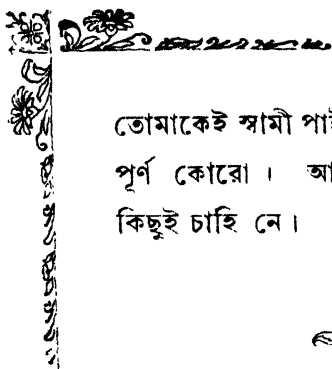 তোমাকেই স্বামী
পূর্ণ কোরো।
কিছুই চাহি নে।